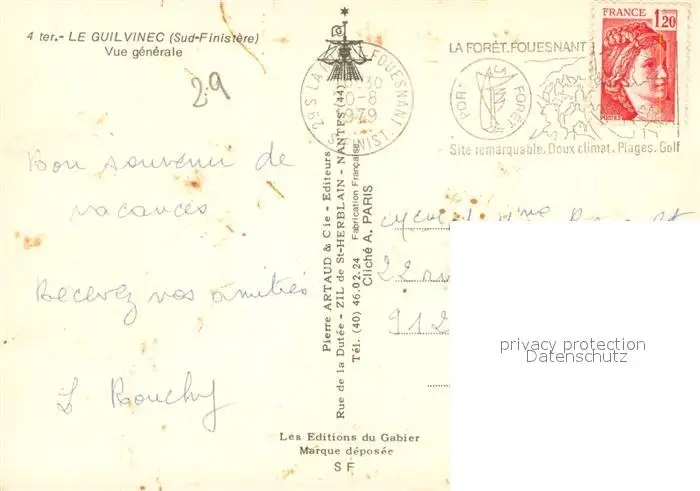 4 ter.- LE GUILVINEC (Sud-Finistère)
Vue générale
29
Bon souvenir de
vacances
Recevez nos amitiés
Pierre ARTAUD & Cie - Editeurs
Rue de la Dutée - ZIL de St-HERBLAIN - NANTES (44)
Tél. (40) 46.02.24 Fabrication Française
Cliché A. PARIS
Les Editions du Gabier
Marque déposée
SF
29 S LA FOUESNANT FINIST.
-8
1979
LA FORÊT.FOUESNANT
PORT FORÊT
Site remarquable. Doux climat. Plages. Golf
FRANCE
1,20
22 
912
privacy protection
Datenschutz